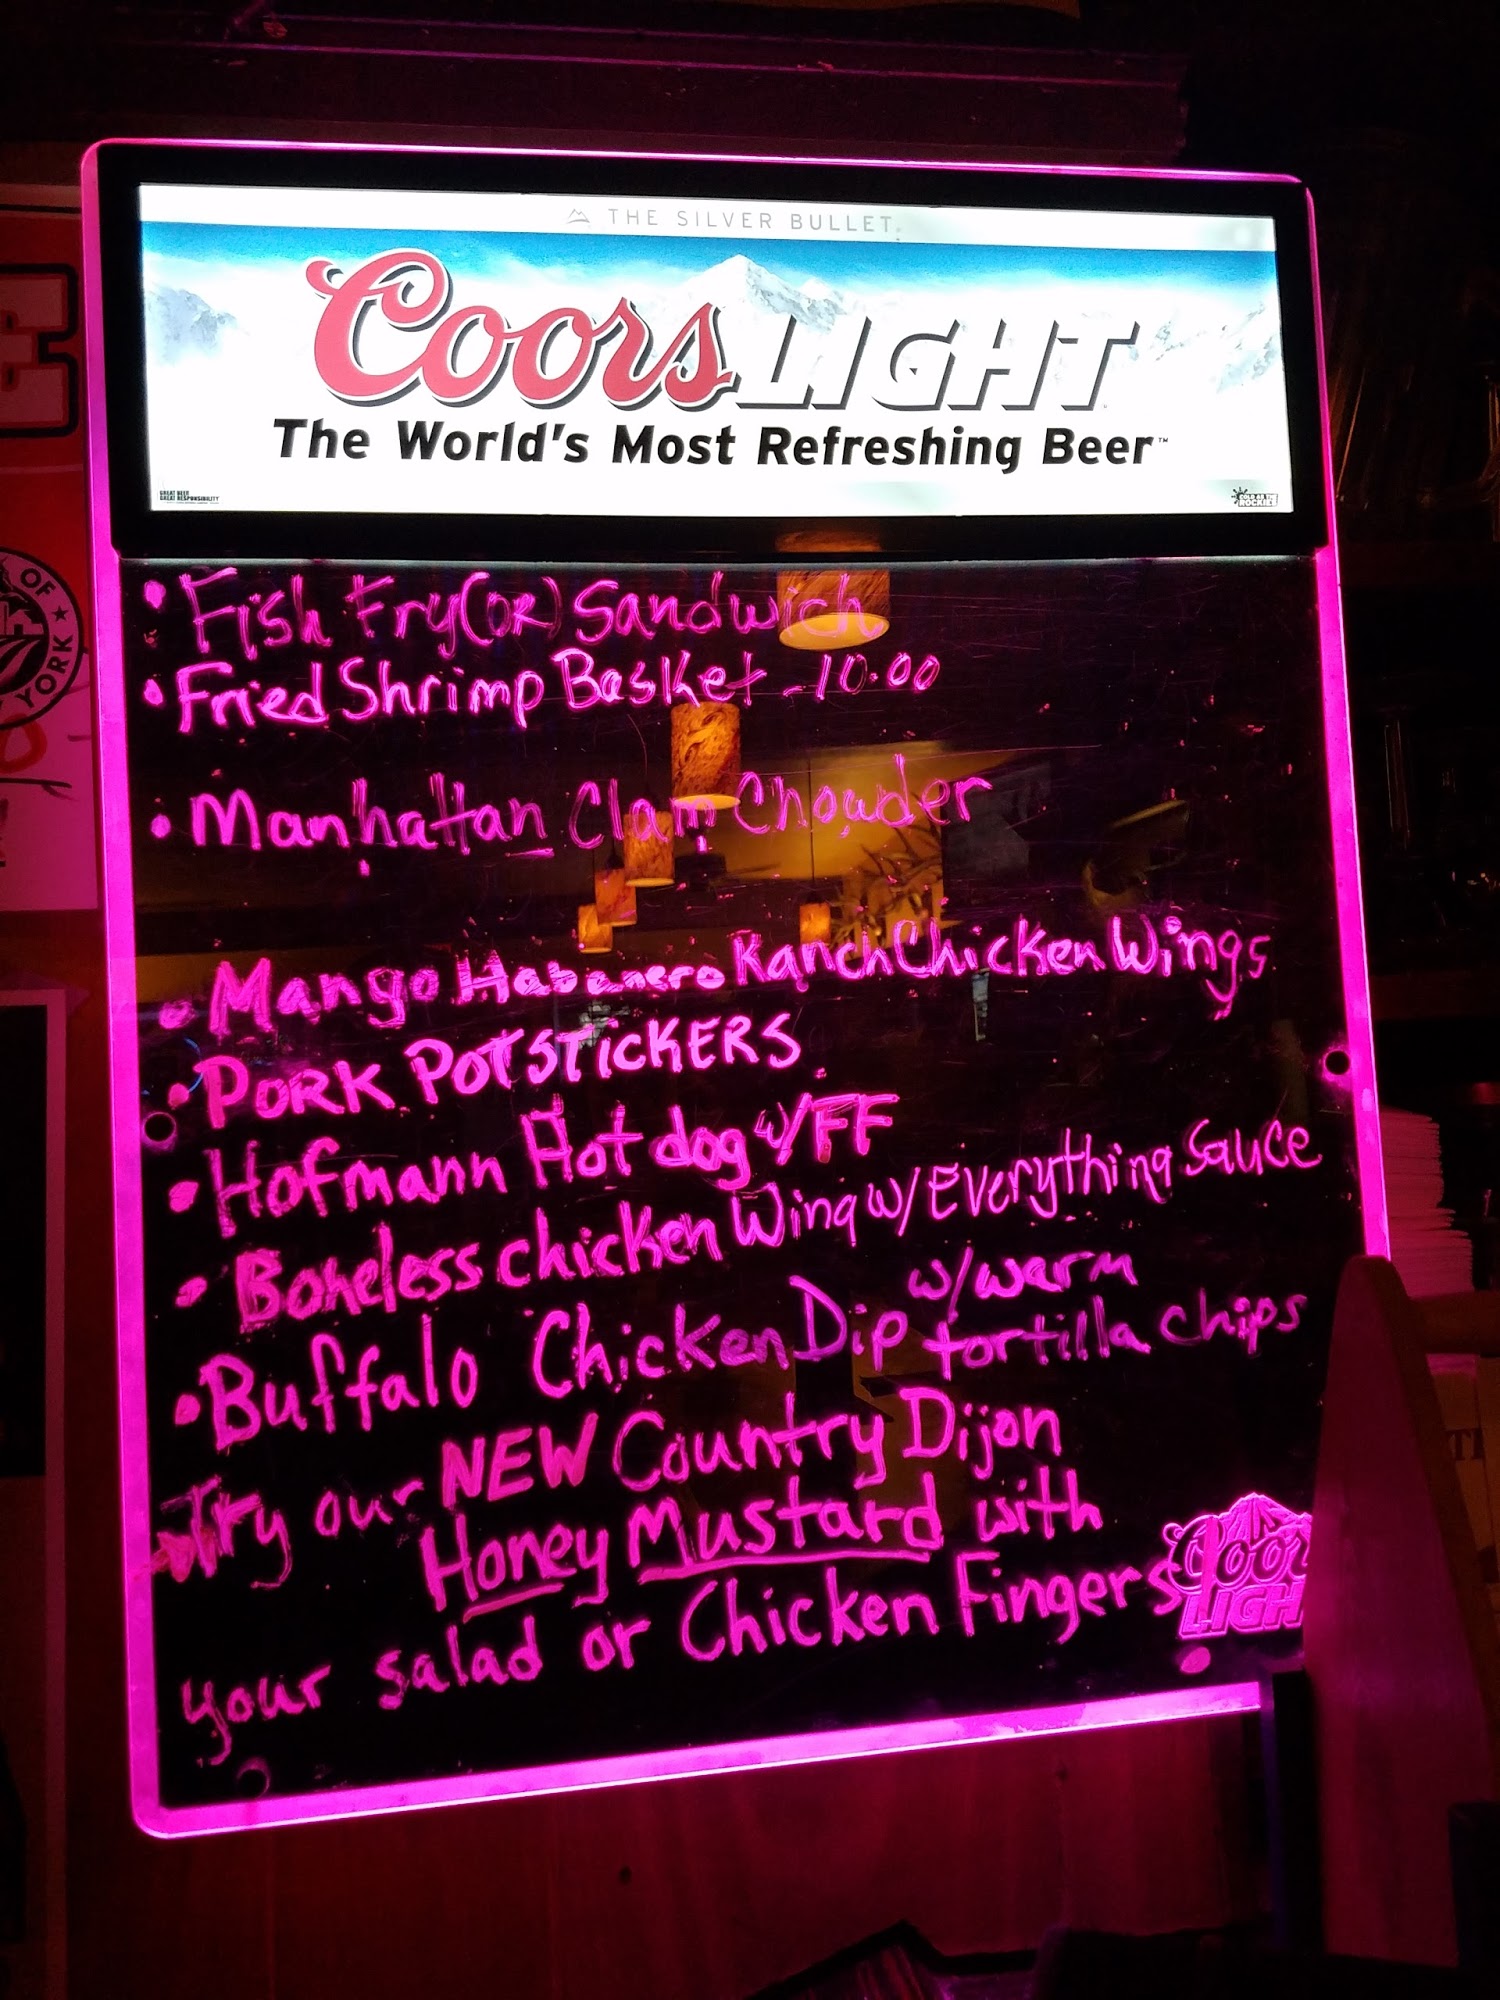 THE SILVER BULLET
Coors LIGHT
The World's Most Refreshing Beer™
GREAT BEER
GREAT RESPONSIBILITY
COLD AS THE
ROCKIES
OF
YORK
• Fish Fry (OR) Sandwich
• Fried Shrimp Basket - 10.00
• Manhattan Clam Chowder
• Mango Habanero Ranch Chicken Wings
• PORK POTSTICKERS
• Hofmann Hot dog w/FF
• Boneless chicken Wing w/ Everything Sauce
• Buffalo Chicken Dip w/warm
tortilla chips
Try our NEW Country Dijon
Honey Mustard with
your salad or Chicken Fingers
Coors
LIGH